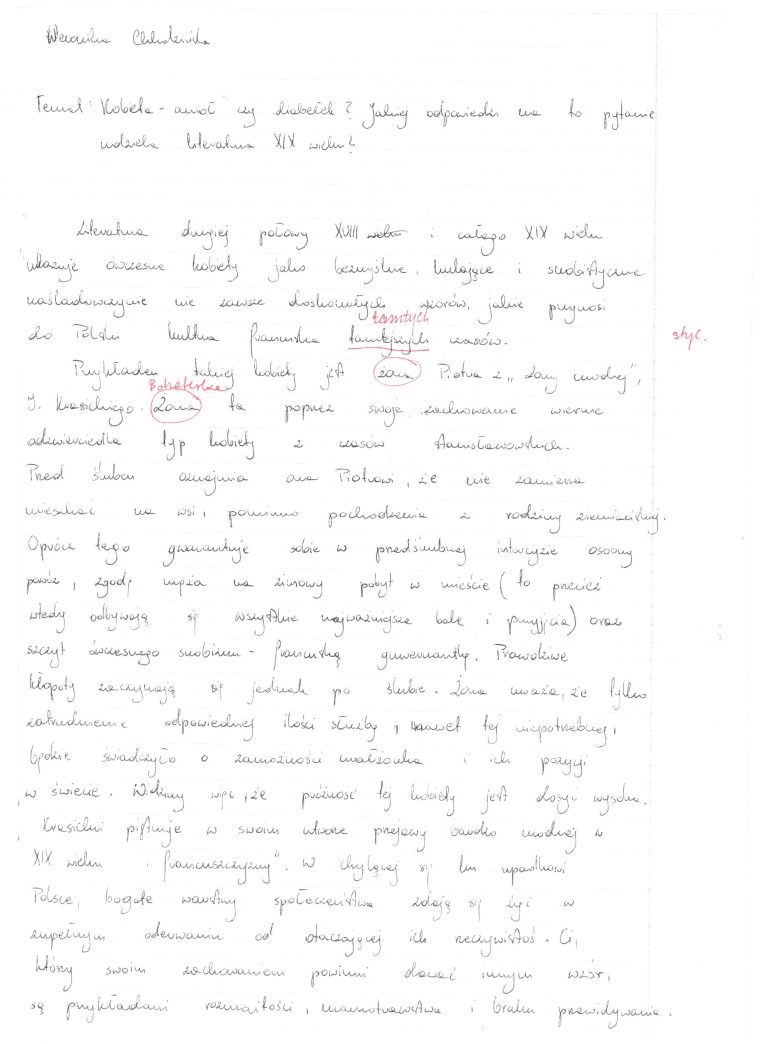 Weronika
Temat: Kobieta - anioł czy diabełek? Jakiej odpowiedzi na to pytanie
udziela literatura XIX wieku?
Literatura drugiej połowy XVIII wieku i całego XIX wieku
ukazuje ówczesne kobiety jako bezmyślne, hulające i snobistyczne
naśladowczynie nie zawsze doskonałych wzorów, jakie przynosi
tamtych
do Polski kultura francuska tamtejszych czasów. styl.
Przykładem takiej kobiety jest żona Piotra z „Żony modnej",
Bohaterka
I. Krasickiego. Żona ta poprzez swoje zachowanie wiernie
odzwierciedla typ kobiety z czasów stanisławowskich.
Przed ślubem oznajmia ona Piotrowi, że nie zamierza
mieszkać na wsi, pomimo pochodzenia z rodziny ziemiańskiej.
Oprócz tego gwarantuje sobie w przedślubnej intercyzie osobny
powóz, zgodę męża na zimowy pobyt w mieście (to przecież
wtedy odbywają się wszystkie najważniejsze bale i przyjęcia) oraz
szczyt ówczesnego snobizmu - francuską guwernantkę. Prawdziwe
kłopoty zaczynają się jednak po ślubie. Żona uważa, że tylko
zatrudnienie odpowiedniej ilości służby, nawet tej niepotrzebnej,
będzie świadczyło o zamożności małżonka i ich pozycji
w świecie. Widzimy więc, że próżność tej kobiety jest dosyć wysoka.
Krasicki piętnuje w swoim utworze przejawy bardzo modnej w
XIX wieku „francuszczyzny". W chylącej się ku upadkowi
Polsce, bogate warstwy społeczeństwa zdają się żyć w
zupełnym oderwaniu od otaczającej ich rzeczywistości. Ci,
którzy swoim zachowaniem powinni dawać innym wzór,
są przykładami rozmaitości, marnotrawstwa i braku przewidywania.